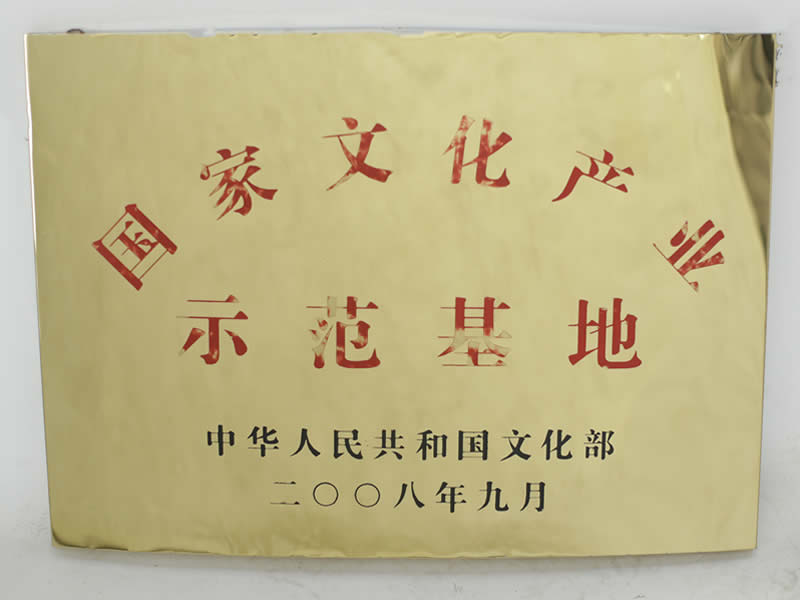 国家文化产业
示范基地
中华人民共和国文化部
二〇〇八年九月